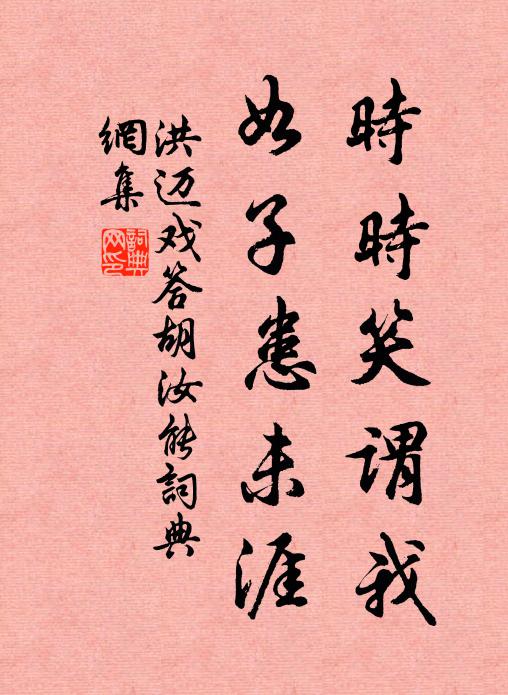 時時笑謂我
如子患未涯
洪迈戏答胡汝能詞典
網集
詞典网印